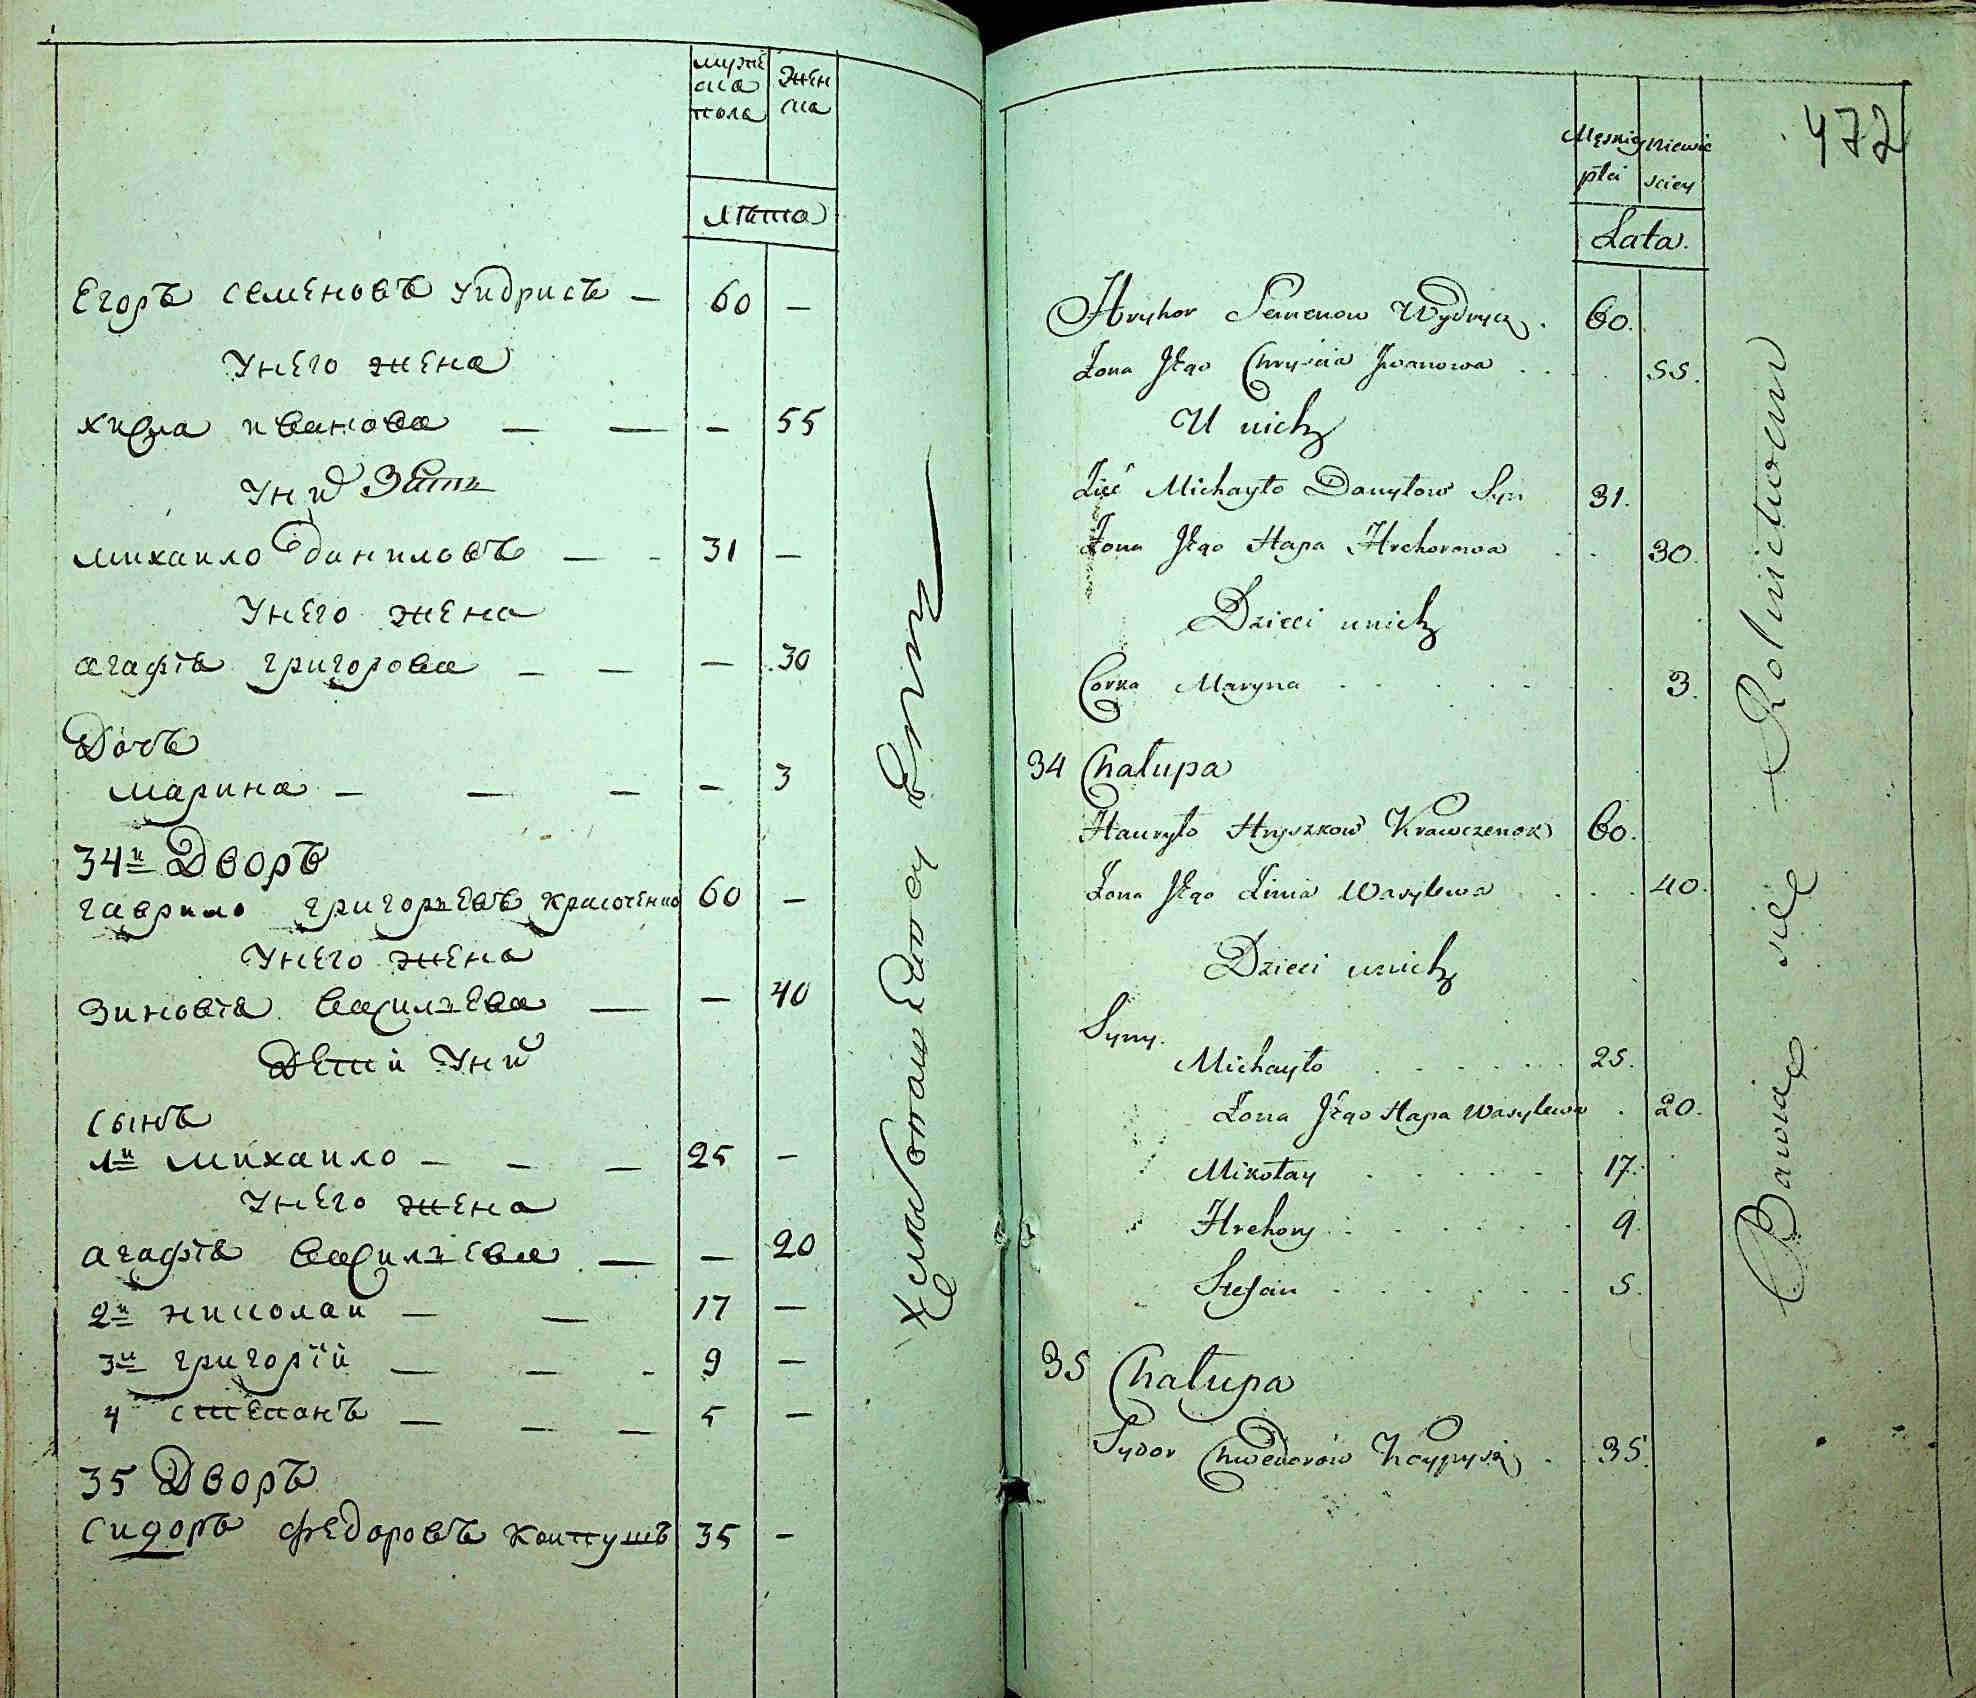 мужеска пола
женска
лѣта
Егоръ Семеновъ Уидрисъ — 60 —
У него жена
Хивря Иванова — — — 55
У ни Зять
Михаило Даниловъ — - 31 —
У него жена
Агафія Григорова — — — 30
Дочь
Марина — — — — 3
34й Дворъ
Гаврило Григорьевъ 60 —
У него жена
Зиновія Васильева — — 40
Дети У ни
Сынъ
1й Михаило — — — 25 —
У него жена
Агафія Васильева — — 20
2й Николаи — — 17 —
3й Григорій — — - 9 —
4 Степанъ — — — 5 —
35 Дворъ
Сидоръ Федоровъ Коптушъ 35 —
472
Męskiey płci
niewieściey
Lata.
Hryhor Semenow Wydrycz. 60.
Żona Jego Chryścia Jwanowa . . . 55.
U nich
Zięć Michayło Danyłow Syn 31.
Żona Jego Hapa Hrehorowa . . 30.
Dzieci u nich
Corka Maryna . . . . . . 3.
34 Chałupa
Hauryło Hryszkow Krawczenok 60.
Żona Jego Zinia Wasylewa . . . 40.
Dzieci u nich
Syny.
Michayło . . . . . . 25.
Żona Jego Hapa Wasylewa . 20.
Mikołay . . . . . . 17.
Hrehory . . . . . . 9.
Stefan . . . . . . 5.
35 Chałupa
Sydor Chwedorow . . 35.
Bawią się Rolnictwem